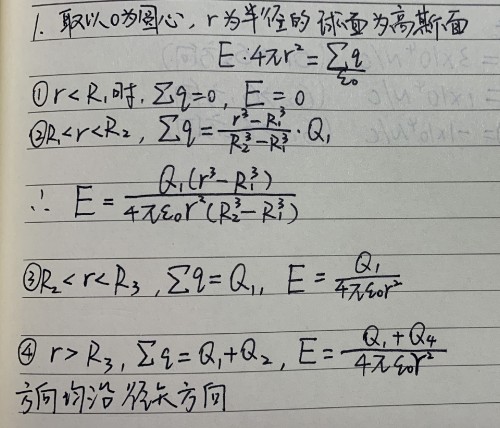 1. 取以O为圆心，r为半径的球面为高斯面
E·4πr² = Σq/ε₀
①r<R₁时，Σq=0，E=0
②R₁<r<R₂，Σq=(r³-R₁³)/(R₂³-R₁³)·Q₁
∴ E = Q₁(r³-R₁³)/(4πε₀r²(R₂³-R₁³))
③R₂<r<R₃，Σq=Q₁，E=Q₁/(4πε₀r²)
④ r>R₃，Σq=Q₁+Q₂，E=(Q₁+Q₄)/(4πε₀r²)
方向均沿径矢方向